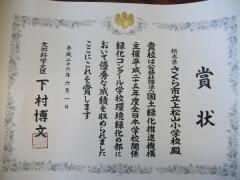 賞状
栃木県さくら市立上松山小学校殿
貴校は公益社団法人国土緑化推進機構
主催平成二十五年度全日本学校関係
緑化コンクール学校環境緑化の部に
おいて優秀な成績を収められました
ここにこれを賞します
平成二十六年六月一日
文部科学大臣
下村博文